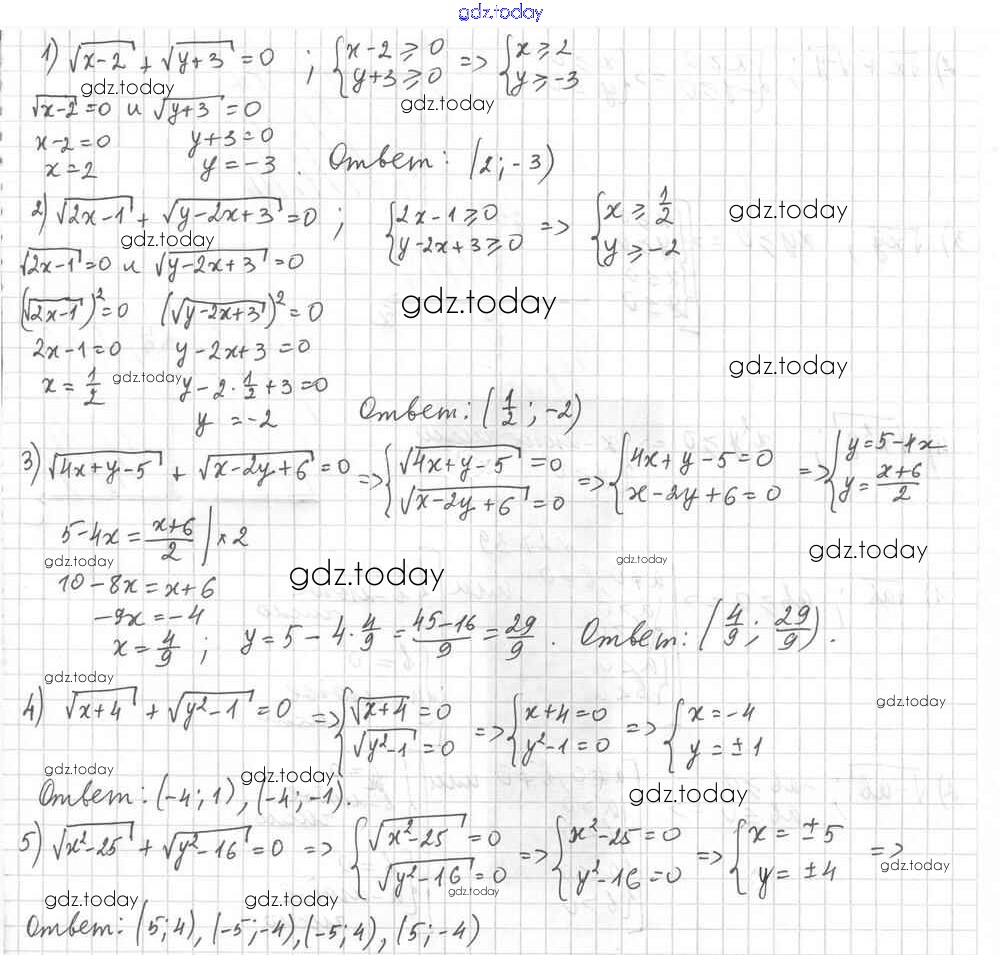 gdz.today
1) √(x-2) + √(y+3) = 0 ; { x-2 ≥ 0 => { x ≥ 2
y+3 ≥ 0 y ≥ -3
gdz.today gdz.today
√(x-2) = 0 и √(y+3) = 0
x-2=0 y+3=0
x=2 y=-3. Ответ: (2; -3)
2) √(2x-1) + √(y-2x+3) = 0 ; { 2x-1 ≥ 0 => { x ≥ 1/2
y-2x+3 ≥ 0 y ≥ -2
gdz.today gdz.today
√(2x-1) = 0 и √(y-2x+3) = 0
(√(2x-1))² = 0 (√(y-2x+3))² = 0 gdz.today
2x-1=0 y-2x+3=0
gdz.today
x = 1/2 gdz.today y-2·1/2+3=0
y = -2 Ответ: (1/2; -2)
3) √(4x+y-5) + √(x-2y+6) = 0 => { √(4x+y-5) = 0 => { 4x+y-5=0 => { y=5-4x
√(x-2y+6) = 0 x-2y+6=0 y=(x+6)/2
5-4x = (x+6)/2 | ×2
gdz.today gdz.today gdz.today gdz.today
10-8x = x+6
-9x = -4
x = 4/9 ; y = 5-4·4/9 = (45-16)/9 = 29/9. Ответ: (4/9; 29/9).
gdz.today gdz.today
4) √(x+4) + √(y²-1) = 0 => { √(x+4) = 0 => { x+4=0 => { x=-4
√(y²-1) = 0 y²-1=0 y=±1
gdz.today gdz.today gdz.today
Ответ: (-4; 1), (-4; -1).
5) √(x²-25) + √(y²-16) = 0 => { √(x²-25) = 0 => { x²-25=0 => { x=±5 =>
√(y²-16) = 0 y²-16=0 y=±4
gdz.today gdz.today gdz.today gdz.today
Ответ: (5; 4), (-5; -4), (-5; 4), (5; -4)